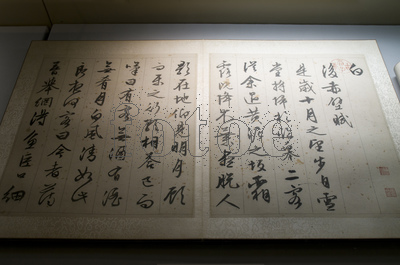 白
後赤壁賦
是歲十月之望步自雪
堂將歸于臨皋二客
從余過黃泥之坂霜
露既降木葉盡脫人
影在地仰見明月顧
而樂之行歌相答已而
嘆曰有客無酒有酒
無肴月白風清如此
良夜何客曰今者薄
暮舉網得魚巨口細
fotoe